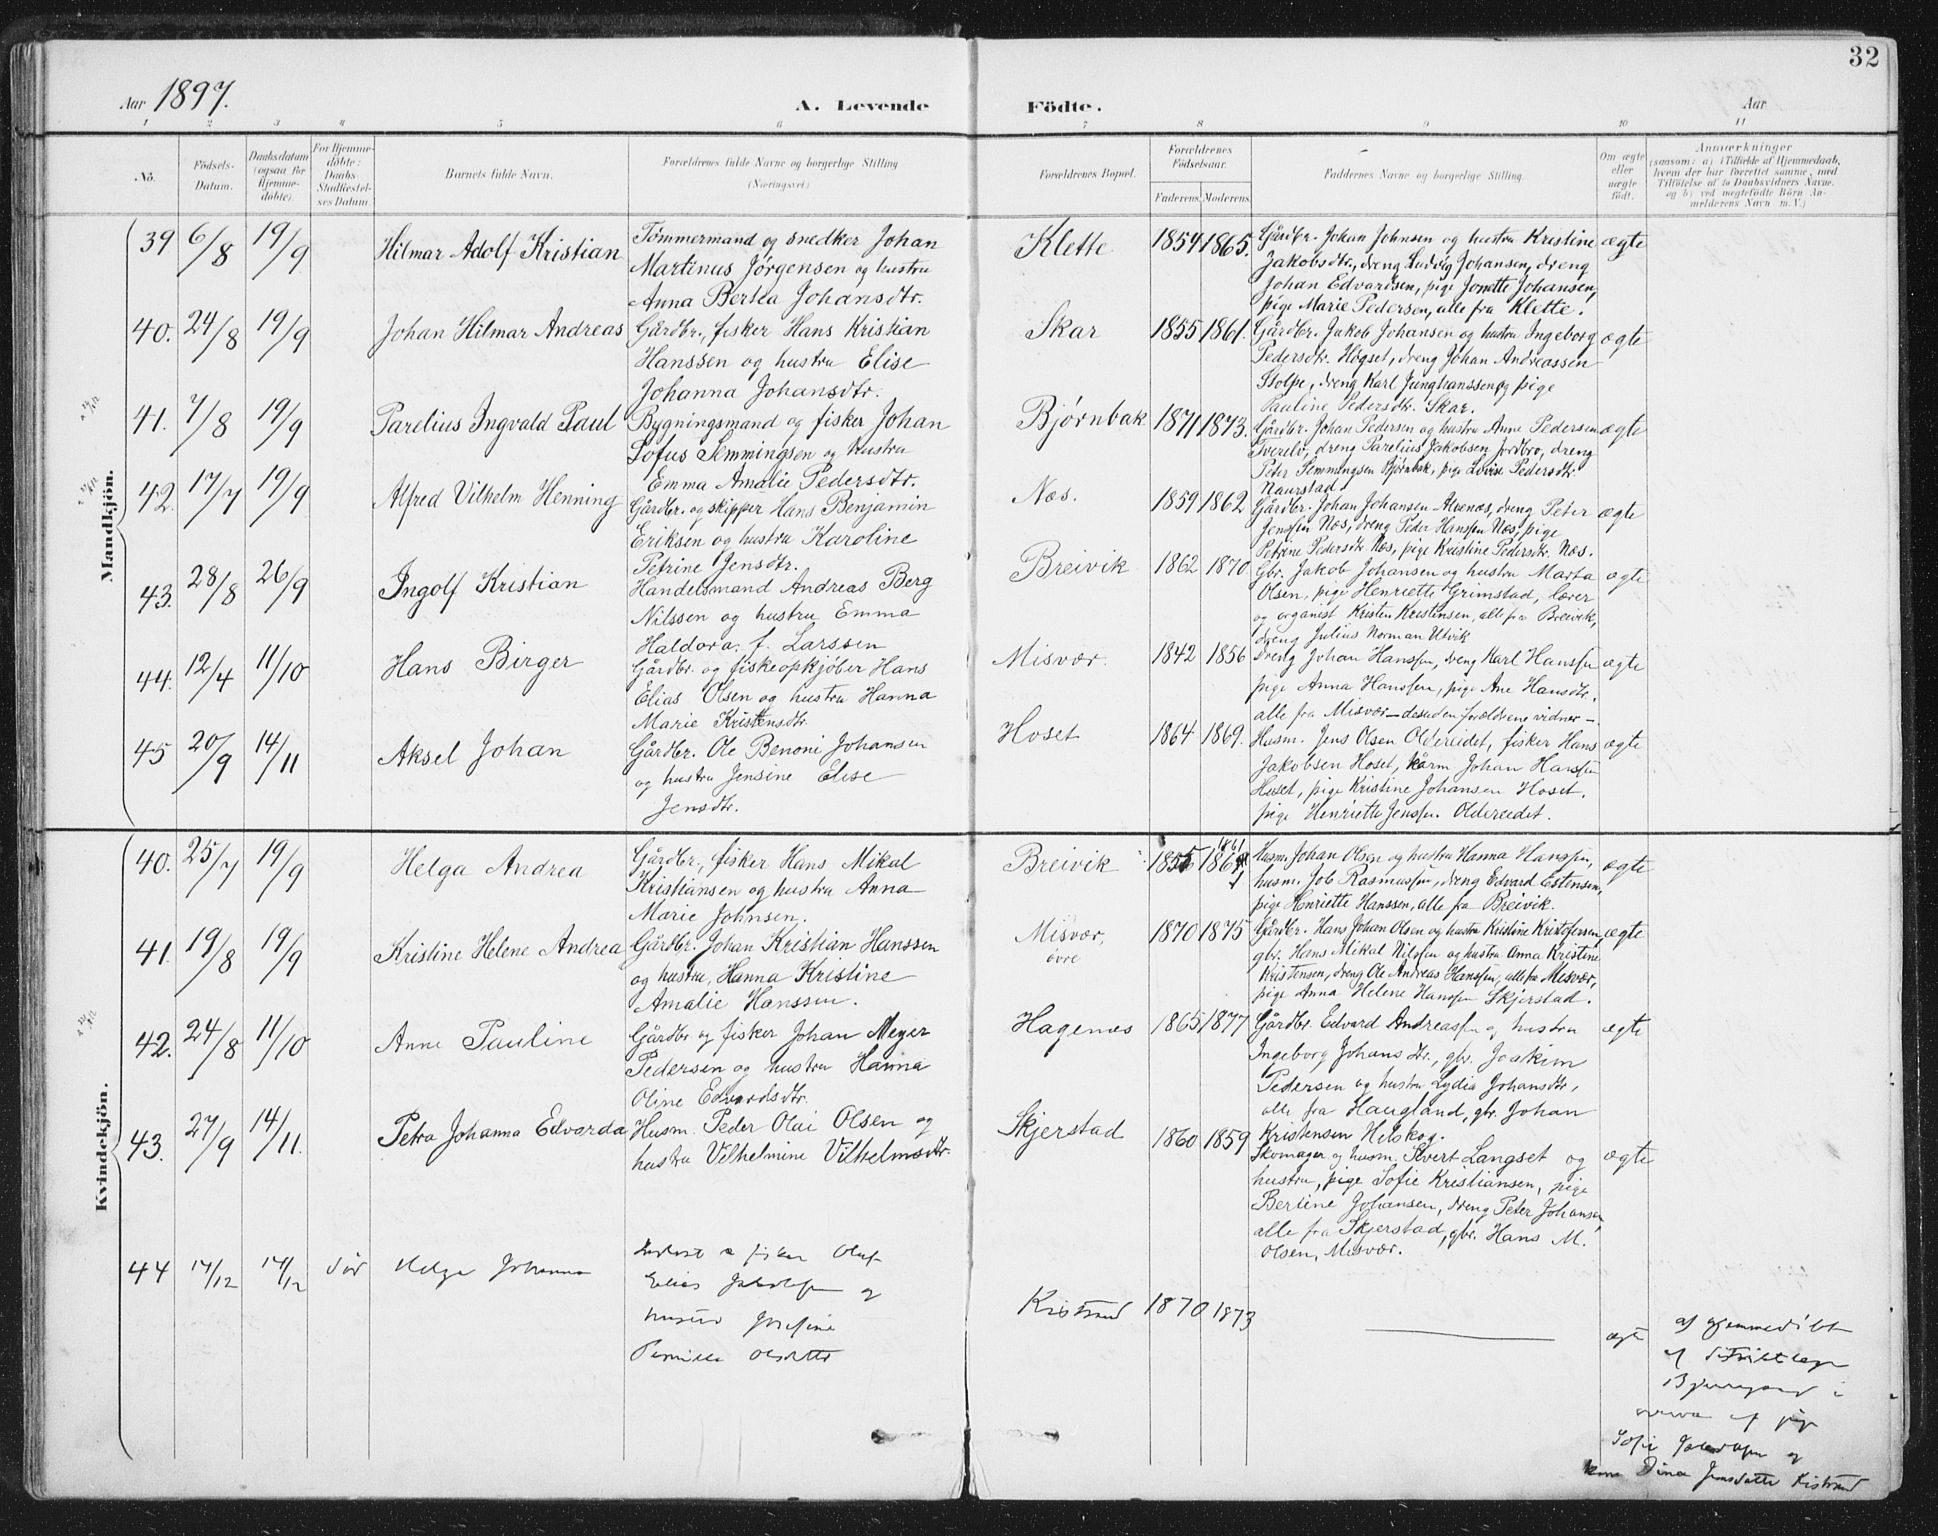 32
Aar 1897.
A. Levende Födte.
Aar
1 2 3 4 5 6 7 8 9 10 11
No.
Födsels-
Datum.
Daabsdatum
(ogsaa for
Hjemme-
döbte).
For Hjemme-
döbte:
Daabs-
Stadfæstel-
ses Datum.
Barnets fulde Navn.
Forældrenes fulde Navne og borgerlige Stilling
(Næringsvei)
Forældrenes Bopæl.
Forældrenes
Födselsaar.
Faderens. Moderens.
Faddernes Navne og borgerlige Stilling.
Om ægte
eller
uægte
födt.
Anmærkninger
(saasom: a) i Tilfælde af Hjemmedaab,
hvem der har forrettet samme, med
Tilföielse af to Daabsvidners Navne,
og b) ved uægtefödte Börn An-
melderens Navn m. V.)
Mandkjön.
39 6/8 19/9
Hilmar Adolf Kristian
Tömmermand og snedker Johan
Martinus Jørgensen og hustru
Anna Bertea Johansdtr.
Klette
1854 1865.
Gårdbr. Johan Johnsen og hustru Kristine
Jakobsdtr., dreng Ludvig Johansen, dreng
Johan Edvardsen, pige Jonette Johansen,
pige Marie Pedersen, alle fra Klette.
ægte
40. 24/8 19/9
Johan Hilmar Andreas
Gårdbr., fisker Hans Kristian
Hanssen og hustru Elise
Johanna Johansdtr.
Skar
1855 1861.
Gårdbr. Jakob Johansen og hustru Ingeborg
Pedersdtr. Högset, dreng Johan Andreassen
Stolpe, dreng Karl Junghanssen og pige
Pauline Pedersdtr. Skar.
ægte
41. 7/8 19/9
Parelius Ingvald Paul
Bygningsmand og fisker Johan
Sofus Semmingsen og hustru
Emma Amalie Pedersdtr.
Bjørnbak
1871 1873.
Gårdbr. Johan Pedersen og hustru Anne Pedersen
Tverelv, dreng Parelius Jakobsen Jordbro, dreng
Peter Semmingsen Bjørnbak, pige Lovise Pedersdtr.
Naurstad
ægte
42. 17/7 19/9
Alfred Vilhelm Henning
Gårdbr. og skipper Hans Benjamin
Eriksen og hustru Karoline
Petrine Jensdtr.
Næs.
1859 1862
Gårdbr. Johan Johansen Alvenæs, dreng Peter
Jenssen Næs, dreng Peder Hanssen Næs, pige
Petrine Pedersdtr. Næs, pige Kristine Pedersdtr. Næs.
ægte
43. 28/8 26/9
Ingolf Kristian
Handelsmand Andreas Berg
Nilssen og hustru Emma
Haldora, f. Larssen
Breivik
1862 1870
Gbr. Jakob Johansen og hustru Marta
Olsen, pige Henriette Grimstad, lærer
og organist Kristen Kristensen, alle fra Breivik,
dreng Julius Norman Utvik
ægte
44. 12/4 11/10
Hans Birger
Gårdbr. og fiskeopkjøber Hans
Elias Olsen og hustru Hanna
Marie Kristensdtr.
Misvær.
1842 1856
Dreng Johan Hanssen, dreng Karl Hanssen
pige Anna Hanssen, pige Ane Hansdtr.
alle fra Misvær – desuden forældrene vidner –.
ægte
45 20/9 14/11
Aksel Johan
Gårdbr. Ole Benoni Johansen
og hustru Jensine Elise
Jensdtr.
Hoset
1864 1869.
Husm. Jens Olsen Oldereidet, fisker Hans
Jakobsen Hoset, kårm. Johan Hanssen
Huset, pige Kristine Johansen Hoset.
pige Henriette Jenssen. Oldereidet.
ægte
Kvindekjön.
40. 25/7 19/9
Helga Andrea
Gårdbr., fisker Hans Mikal
Kristiansen og hustru Anna
Marie Johnsen.
Breivik
1861
Husm. Johan Olsen og hustru Hanna Hanssen,
husm. Job Rasmussen, dreng Edvard Estensen,
pige Henriette Hanssen, alle fra Breivik.
ægte
41. 19/8 19/9
Kristine Helene Andrea
Gårdbr. Johan Kristian Hanssen
og hustru, Hanna Kristine
Amalie Hanssen.
Misvær,
övre
1870 1875
Gårdbr. Hans Johan Olsen og hustru Kristine Kristofersen,
gbr. Hans Mikal Nilssen og hustru Anna Kristine
Kristensen, dreng Ole Andreas Hanssen, alle fra Misvær,
pige Anna Helene Hanssen Skjerstad.
ægte
42. 24/8 11/10
Anne Pauline
Gårdbr. og fisker Johan Meyer
Pedersen og hustru Hanna
Oline Edvardsdtr.
Hagenæs
1865 1877
Gårdbr. Edvard Andreassen og hustru
Ingeborg Johansdtr., gbr. Joakim
Pedersen og hustru Lydia Johansdtr,
alle fra Haugland, gbr. Johan
Kristensen Helskog.
ægte
43. 27/9 14/11.
Petra Johanna Edvarda
Husm. Peder Olai Olsen og
hustru Vilhelmine Vilhelmsdtr.
Skjerstad
1860 1859
Skomager og husm. Sivert Langset og
hustru, pige Sofie Kristiansen, pige
Berline Johansen, dreng Peter Johansen,
alle fra Skjerstad, gbr. Hans M.
Olsen, Misvær.
ægte
44 17/12 17/12
Helga Johanna
fisker Oluf
Elias Jakobsen og
hustru Josefine
Pernille Olsdatter
Kistrand
1870 1873
ægte
af hjemmedöbt
af
i
overvær af pige
Sofie Jakobsen og
kone Dina Jensdatter Kistrand